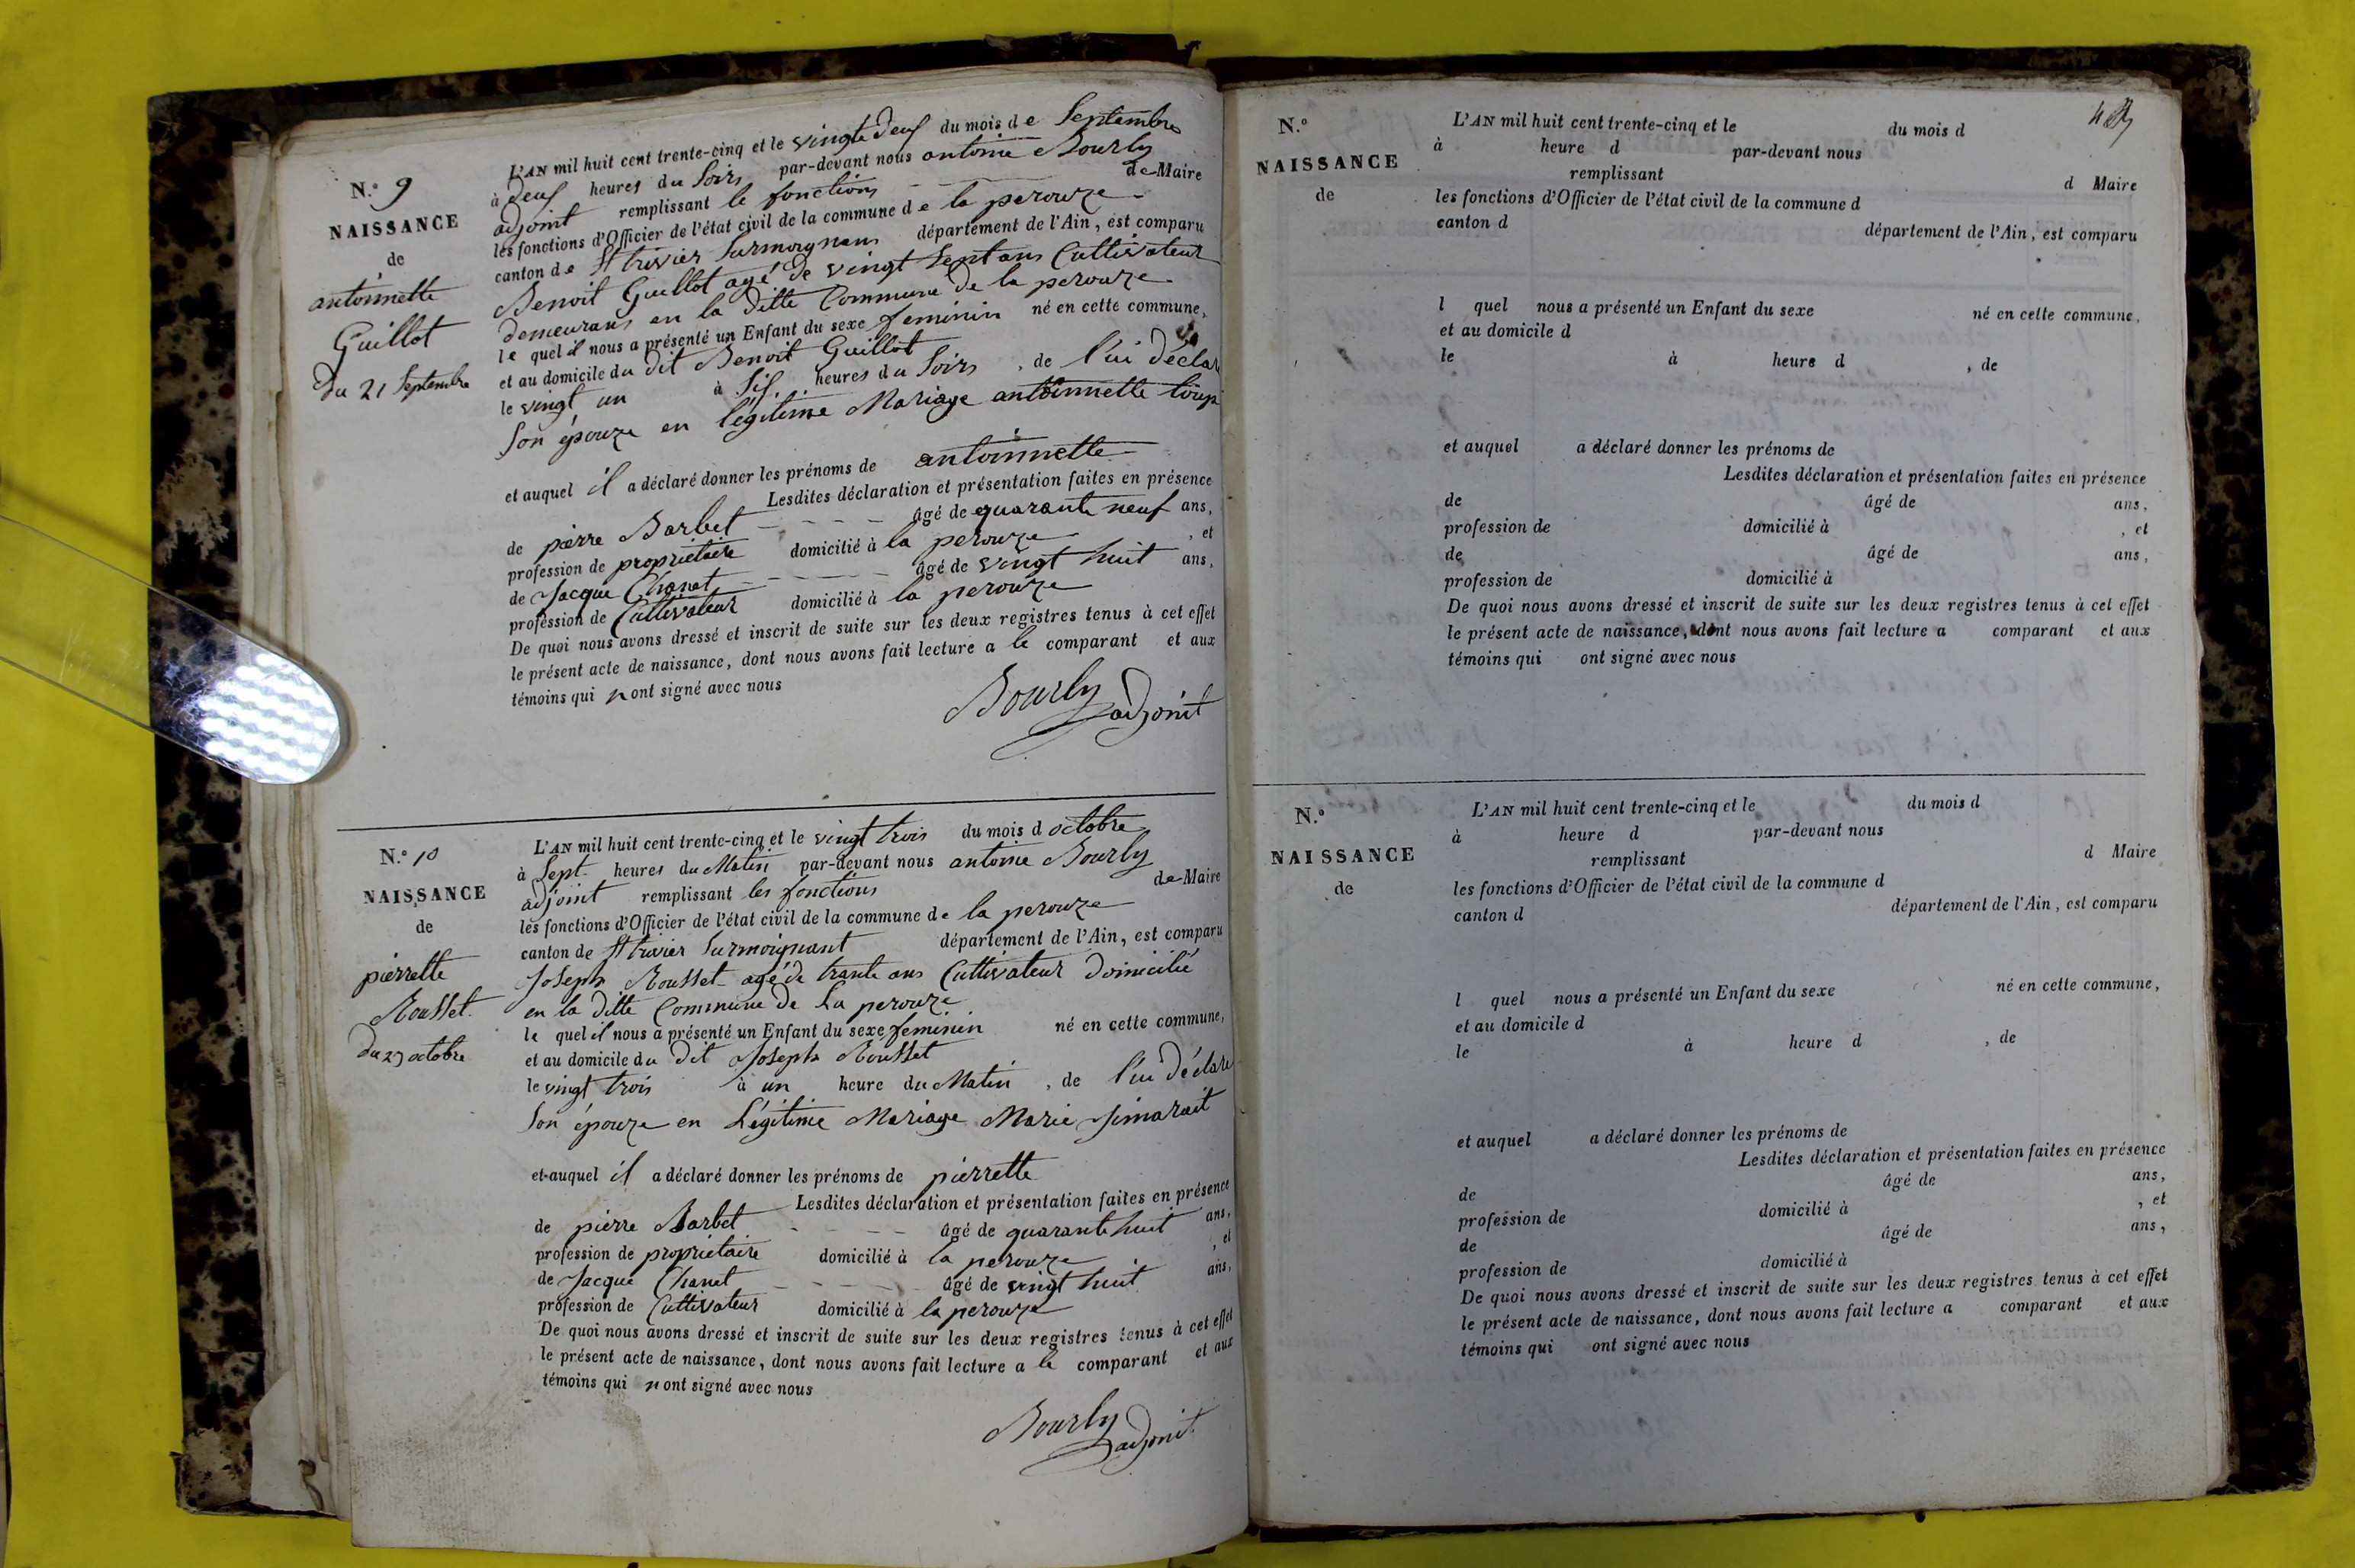 N.o 9
NAISSANCE
de
antoinnette
Guillot
Du 21 Septembre
L'AN mil huit cent trente-cinq et le vingte deux du mois de Septembre
à deux heures du Soirs par-devant nous antoine Bourly
adjoint remplissant le fonctions de Maire
les fonctions d'Officier de l'état civil de la commune de la perouze
canton de St trivier Surmoignans département de l'Ain, est comparu
Benoit Guillot agé de vingt Sept ans Cultivateur
demeurans en la ditte Commune de la perouze
le quel il nous a présenté un Enfant du sexe feminin né en cette commune,
et au domicile du dit Benoit Guillot
le vingt un à Six heures du Soirs , de l'ui déclar
Son épouze en légitime Mariage antoinnette
et auquel il a déclaré donner les prénoms de antoinnette
Lesdites déclaration et présentation faites en présence
de pierre Barbet âgé de quarante neuf ans,
profession de propriétaire domicilié à la perouze , et
de Jacque Chanet âgé de vingt huit ans,
profession de Cultivateur domicilié à la perouze
De quoi nous avons dressé et inscrit de suite sur les deux registres tenus à cet effet
le présent acte de naissance, dont nous avons fait lecture a le comparant et aux
témoins qui n ont signé avec nous
Bourly
adjoint
N.o 10
NAISSANCE
de
pierrette
Rousset
du 23 octobre
L'AN mil huit cent trente-cinq et le vingt trois du mois d octobre
à Sept heures du Matin par-devant nous antoine Bourly
adjoint remplissant les fonctions de Maire
les fonctions d'Officier de l'état civil de la commune de la perouze
canton de St trivier Surmoignant département de l'Ain, est comparu
Joseph Rousset agé de trante ans Cultivateur domicilié
en la ditte Commune de La perouze
le quel il nous a présenté un Enfant du sexe feminin né en cette commune,
et au domicile du dit Joseph Rousset
le vingt trois à un heure du Matin , de l'ui déclare
Son épouze en Légitime Mariage Marie Jimarait
et auquel il a déclaré donner les prénoms de pierrette
Lesdites déclaration et présentation faites en présence
de pierre Barbet âgé de quarante huit ans,
profession de propriétaire domicilié à la perouze , et
de Jacque Chanet âgé de vingt huit ans,
profession de Cultivateur domicilié à la perouze
De quoi nous avons dressé et inscrit de suite sur les deux registres tenus à cet effet
le présent acte de naissance, dont nous avons fait lecture a le comparant et aux
témoins qui n ont signé avec nous
Bourly
adjoint
N.o
NAISSANCE
de
L'AN mil huit cent trente-cinq et le du mois d
à heure d par-devant nous
remplissant d Maire
les fonctions d'Officier de l'état civil de la commune d
canton d département de l'Ain, est comparu
l quel nous a présenté un Enfant du sexe né en cette commune,
et au domicile d
le à heure d , de
et auquel a déclaré donner les prénoms de
Lesdites déclaration et présentation faites en présence
de âgé de ans,
profession de domicilié à , et
de âgé de ans,
profession de domicilié à
De quoi nous avons dressé et inscrit de suite sur les deux registres tenus à cet effet
le présent acte de naissance, dont nous avons fait lecture a comparant et aux
témoins qui ont signé avec nous
N.o
NAISSANCE
de
L'AN mil huit cent trente-cinq et le du mois d
à heure d par-devant nous
remplissant d Maire
les fonctions d'Officier de l'état civil de la commune d
canton d département de l'Ain, est comparu
l quel nous a présenté un Enfant du sexe né en cette commune,
et au domicile d
le à heure d , de
et auquel a déclaré donner les prénoms de
Lesdites déclaration et présentation faites en présence
de âgé de ans,
profession de domicilié à , et
de âgé de ans,
profession de domicilié à
De quoi nous avons dressé et inscrit de suite sur les deux registres tenus à cet effet
le présent acte de naissance, dont nous avons fait lecture a comparant et aux
témoins qui ont signé avec nous